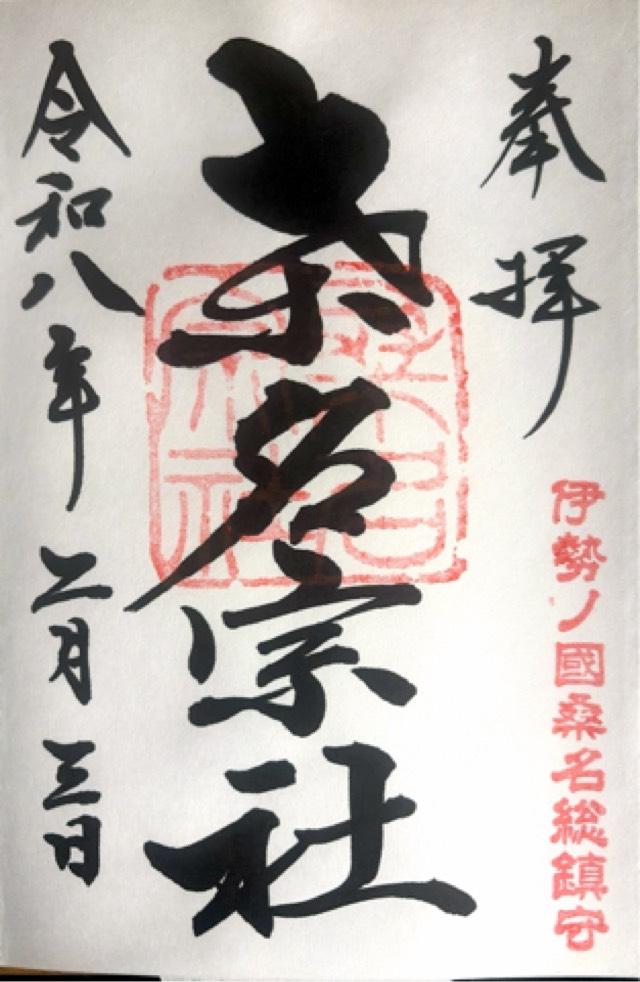 奉拝
伊勢ノ國桑名総鎮守
桑名宗社
令和八年二月三日